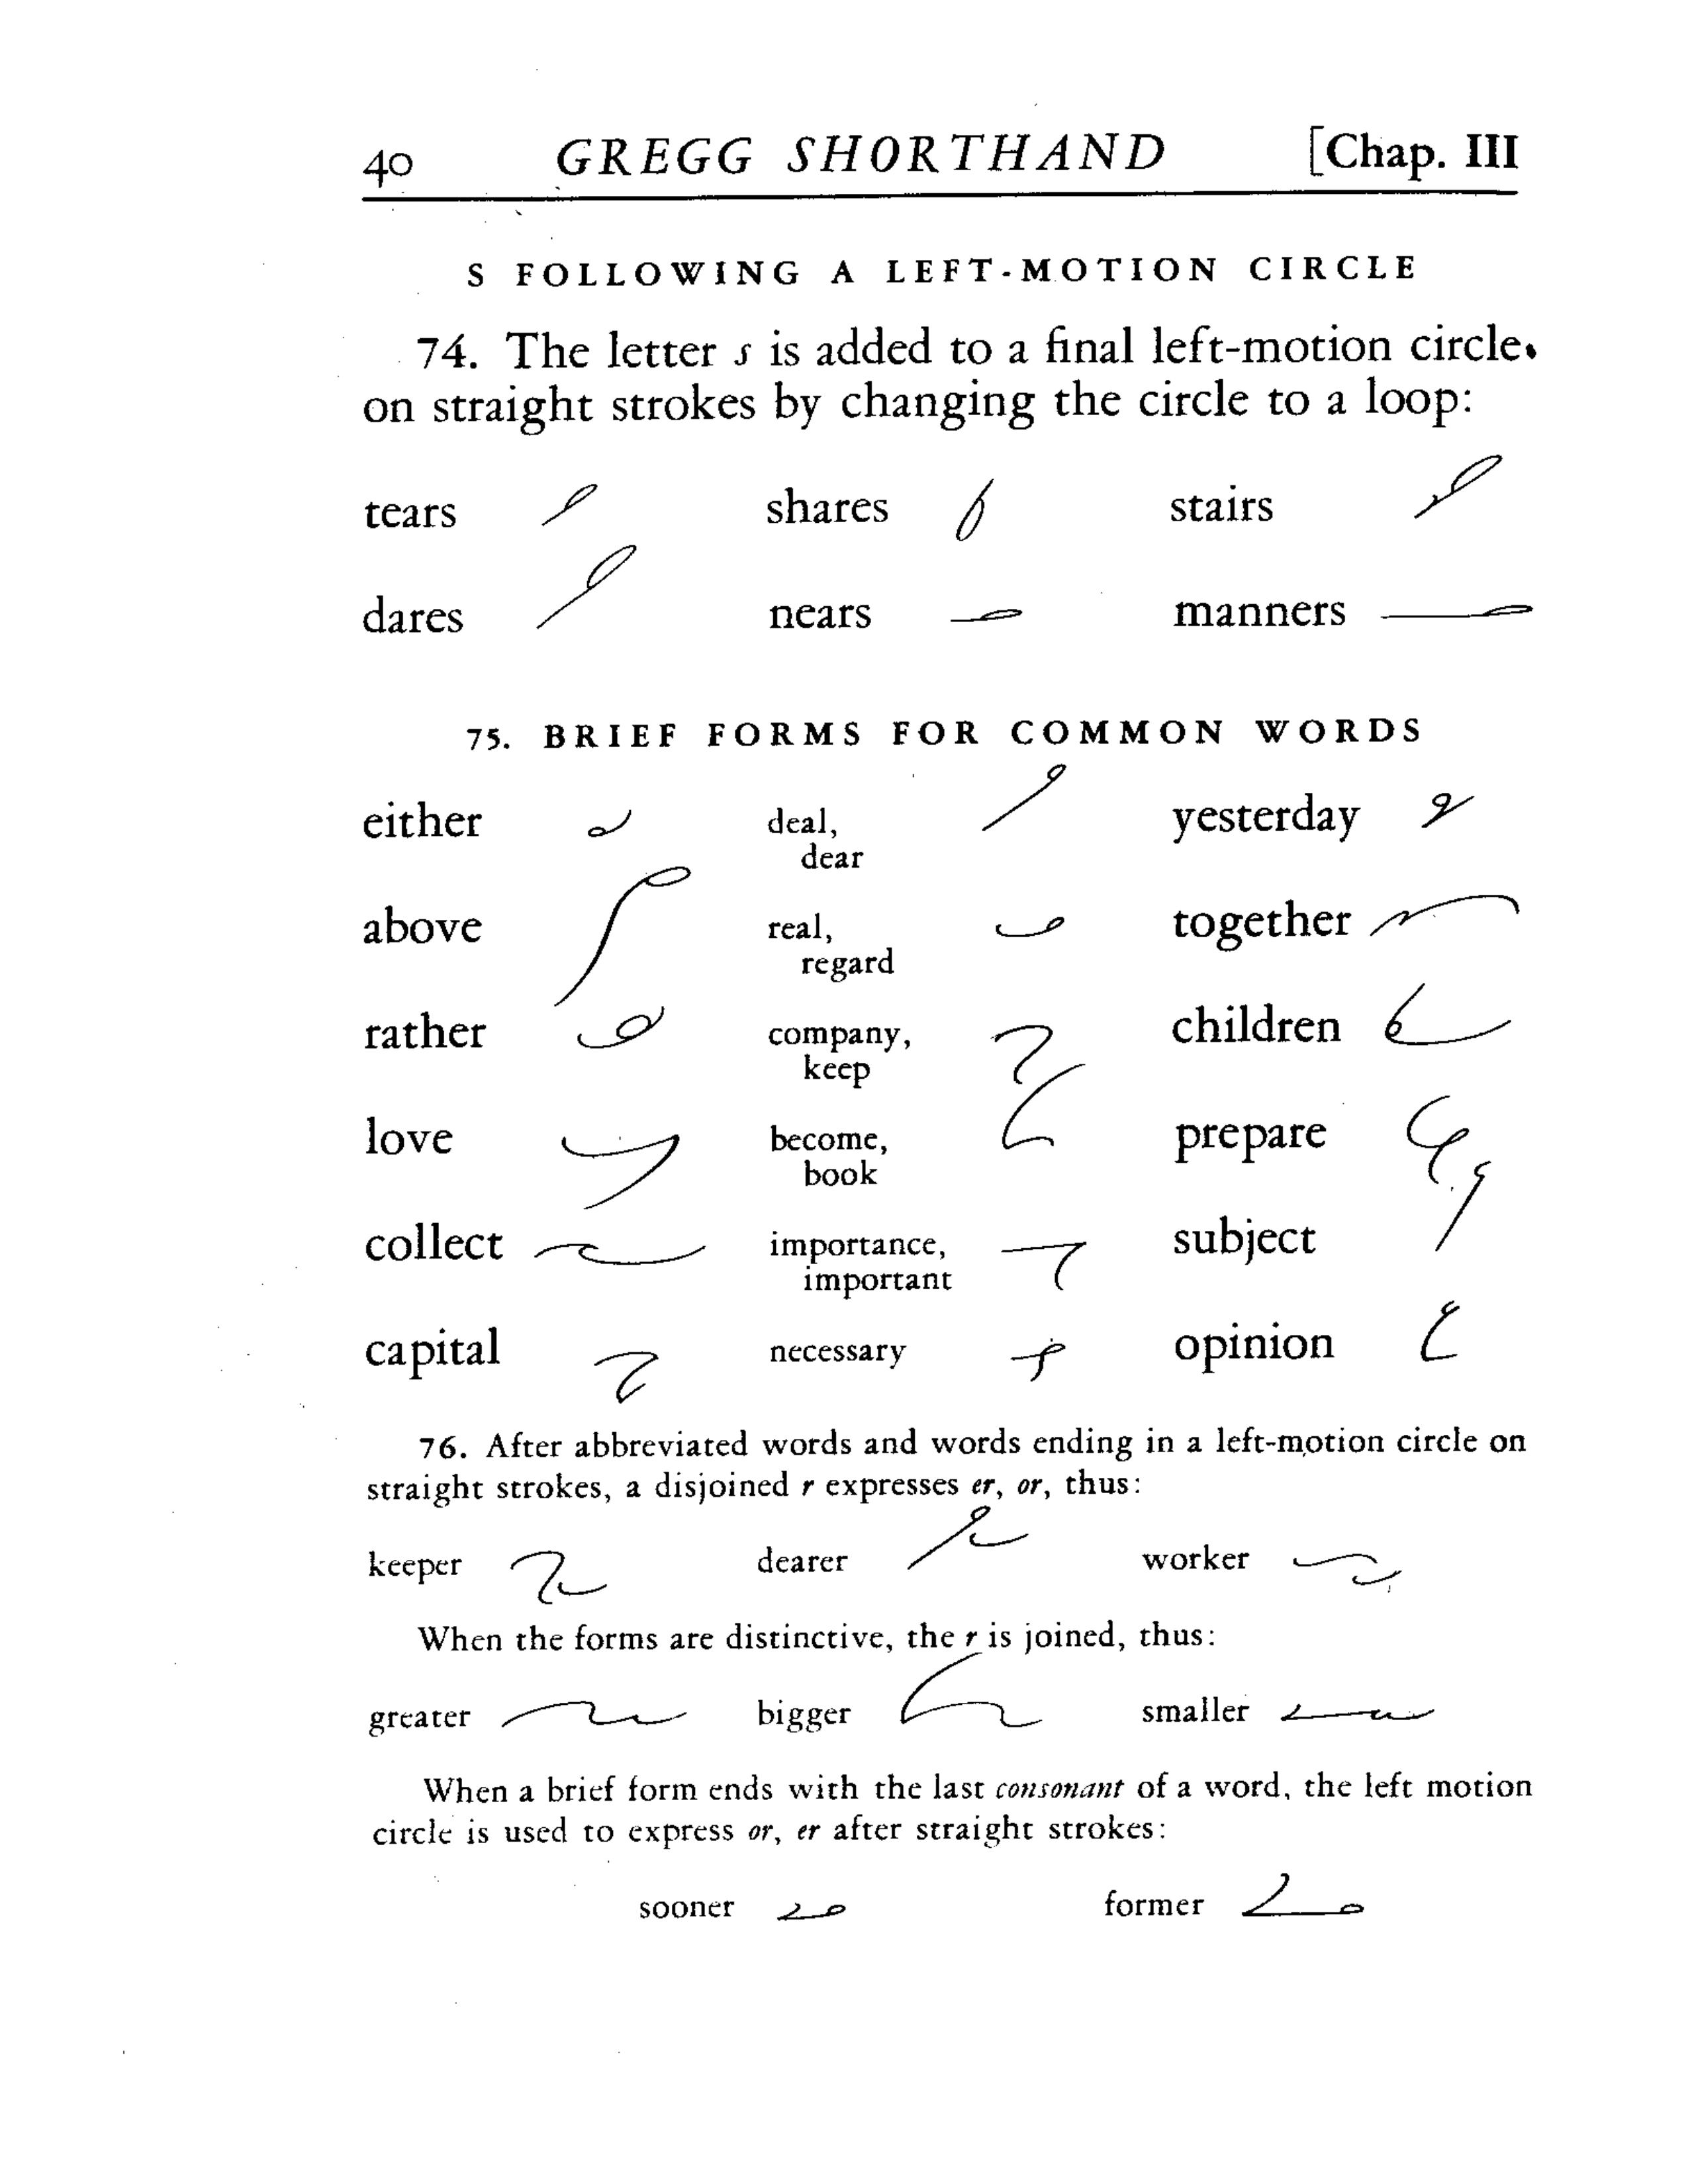 40 GREGG SHORTHAND [Chap. III
S FOLLOWING A LEFT-MOTION CIRCLE
74. The letter s is added to a final left-motion circle
on straight strokes by changing the circle to a loop:
tears shares stairs
dares nears manners
75. BRIEF FORMS FOR COMMON WORDS
either deal, yesterday
dear
above real, together
regard
rather company, children
keep
love become, prepare
book
collect importance, subject
important
capital necessary opinion
76. After abbreviated words and words ending in a left-motion circle on
straight strokes, a disjoined r expresses er, or, thus:
keeper dearer worker
When the forms are distinctive, the r is joined, thus:
greater bigger smaller
When a brief form ends with the last consonant of a word, the left motion
circle is used to express or, er after straight strokes:
sooner former